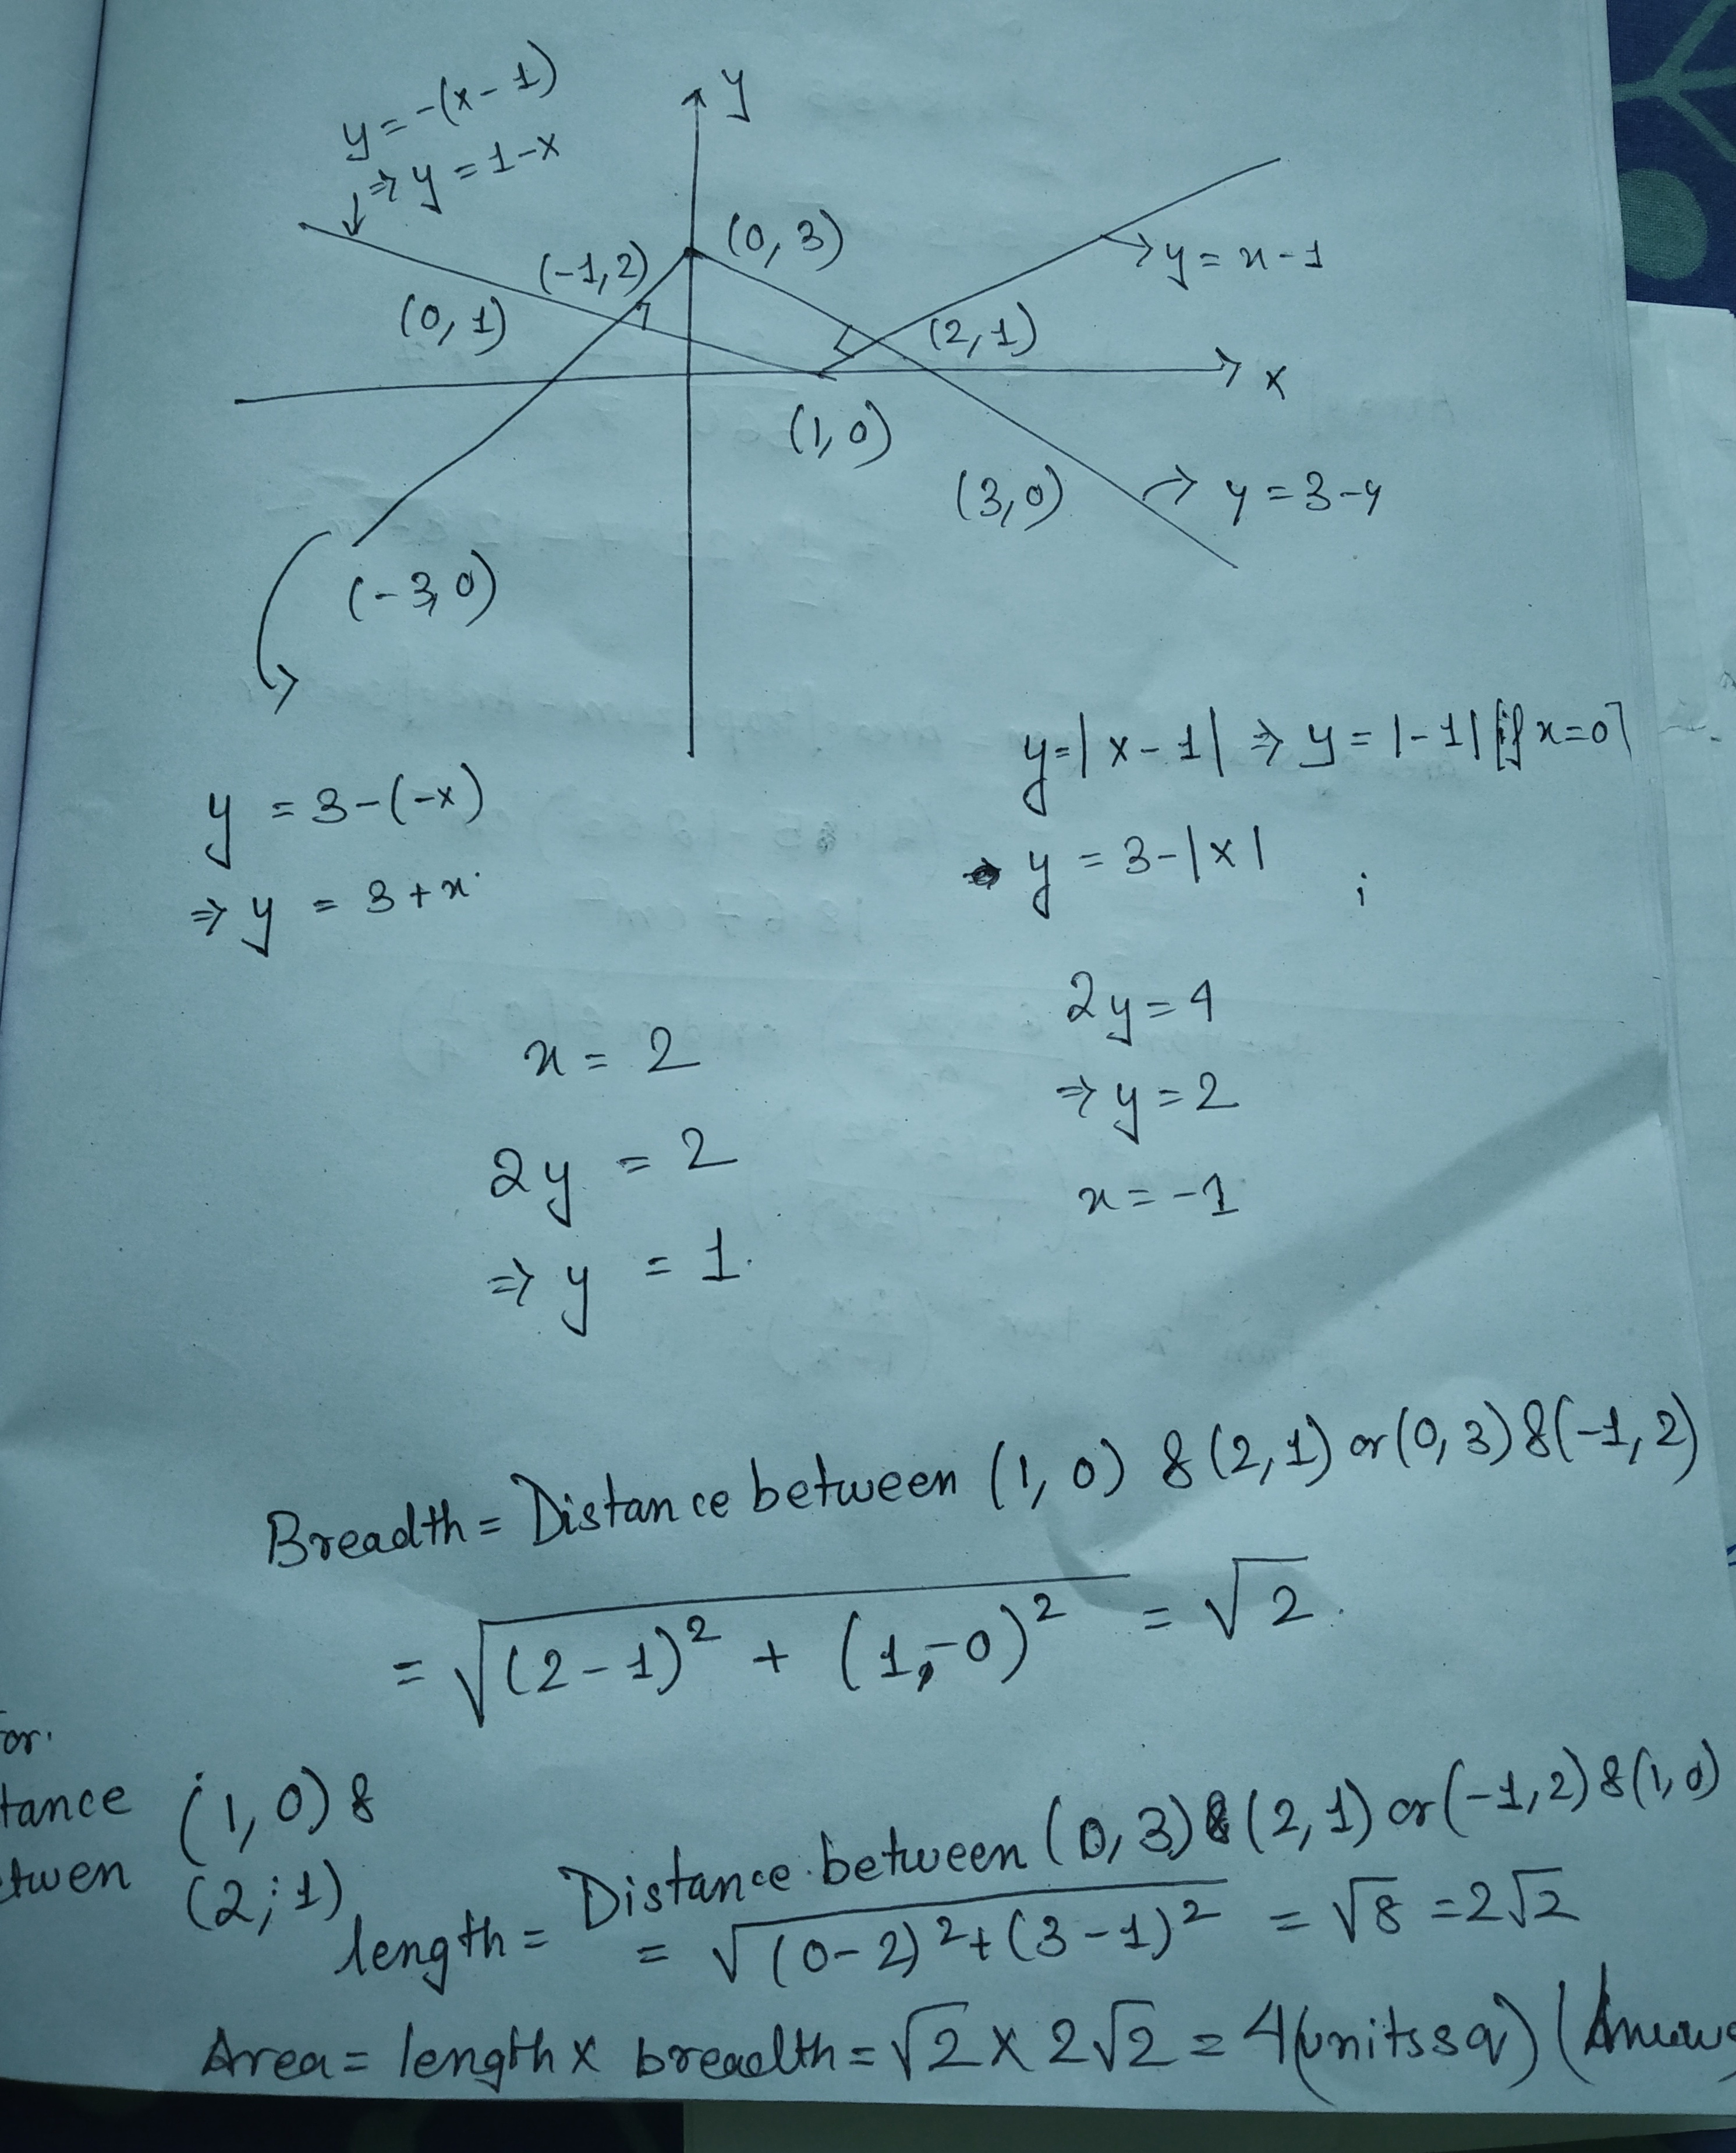 y = -(x - 1)
⇒ y = 1 - x
y
(0, 3)
(-1, 2)
(0, 1)
→ y = x - 1
(2, 1)
x
(1, 0)
(3, 0)
→ y = 3 - y
(-3, 0)
y = |x - 1| ⇒ y = |-1| [if x = 0]
y = 3 - (-x)
y = 3 - |x| ;
⇒ y = 3 + x
2y = 4
x = 2
⇒ y = 2
2y = 2
x = -1
⇒ y = 1.
Breadth = Distance between (1, 0) & (2, 1) or (0, 3) & (-1, 2)
= √((2 - 1)² + (1 - 0)²) = √2.
or.
tance (1, 0) &
twen (2, 1)
length = Distance between (0, 3) & (2, 1) or (-1, 2) & (1, 0)
= √((0 - 2)² + (3 - 1)²) = √8 = 2√2
Area = length × breadth = √2 × 2√2 = 4 (units sq)